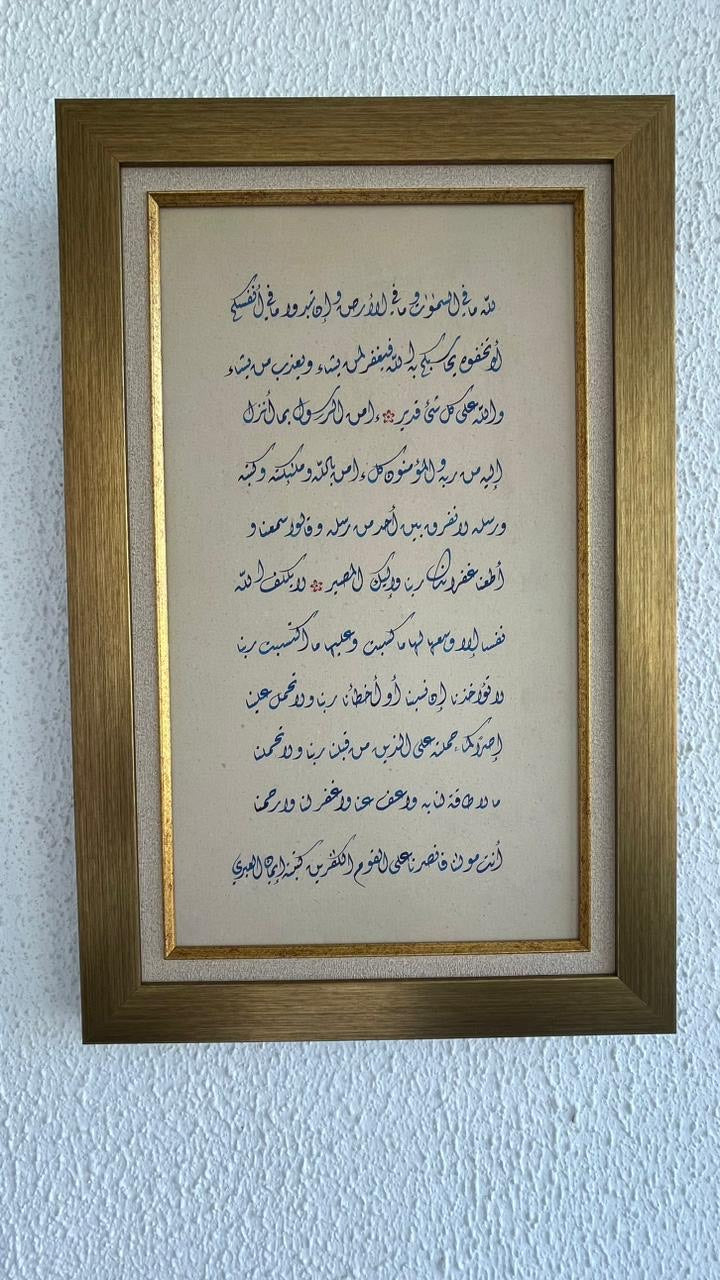 لله ما في السموت وما في الأرض وإن تبدوا ما في أنفسكم
أو تخفوه يحاسبكم به الله فيغفر لمن يشاء ويعذب من يشاء
والله على كل شئ قدير ءامن الرسول بما أنزل
إليه من ربه والمؤمنون كل ءامن بالله وملئكته وكتبه
ورسله لا نفرق بين أحد من رسله وقالوا سمعنا و
أطعنا غفرانك ربنا وإليك المصير لا يكلف الله
نفسا إلا وسعها لها ما كسبت وعليها ما اكتسبت ربنا
لا تؤاخذنا إن نسينا أو أخطأنا ربنا ولا تحمل علينا
إصرًا كما حملته على الذين من قبلنا ربنا ولا تحملنا
ما لا طاقة لنا به واعف عنا واغفر لنا وارحمنا
أنت مولنا فانصرنا على القوم الكفرين كتبته إيمان العبري